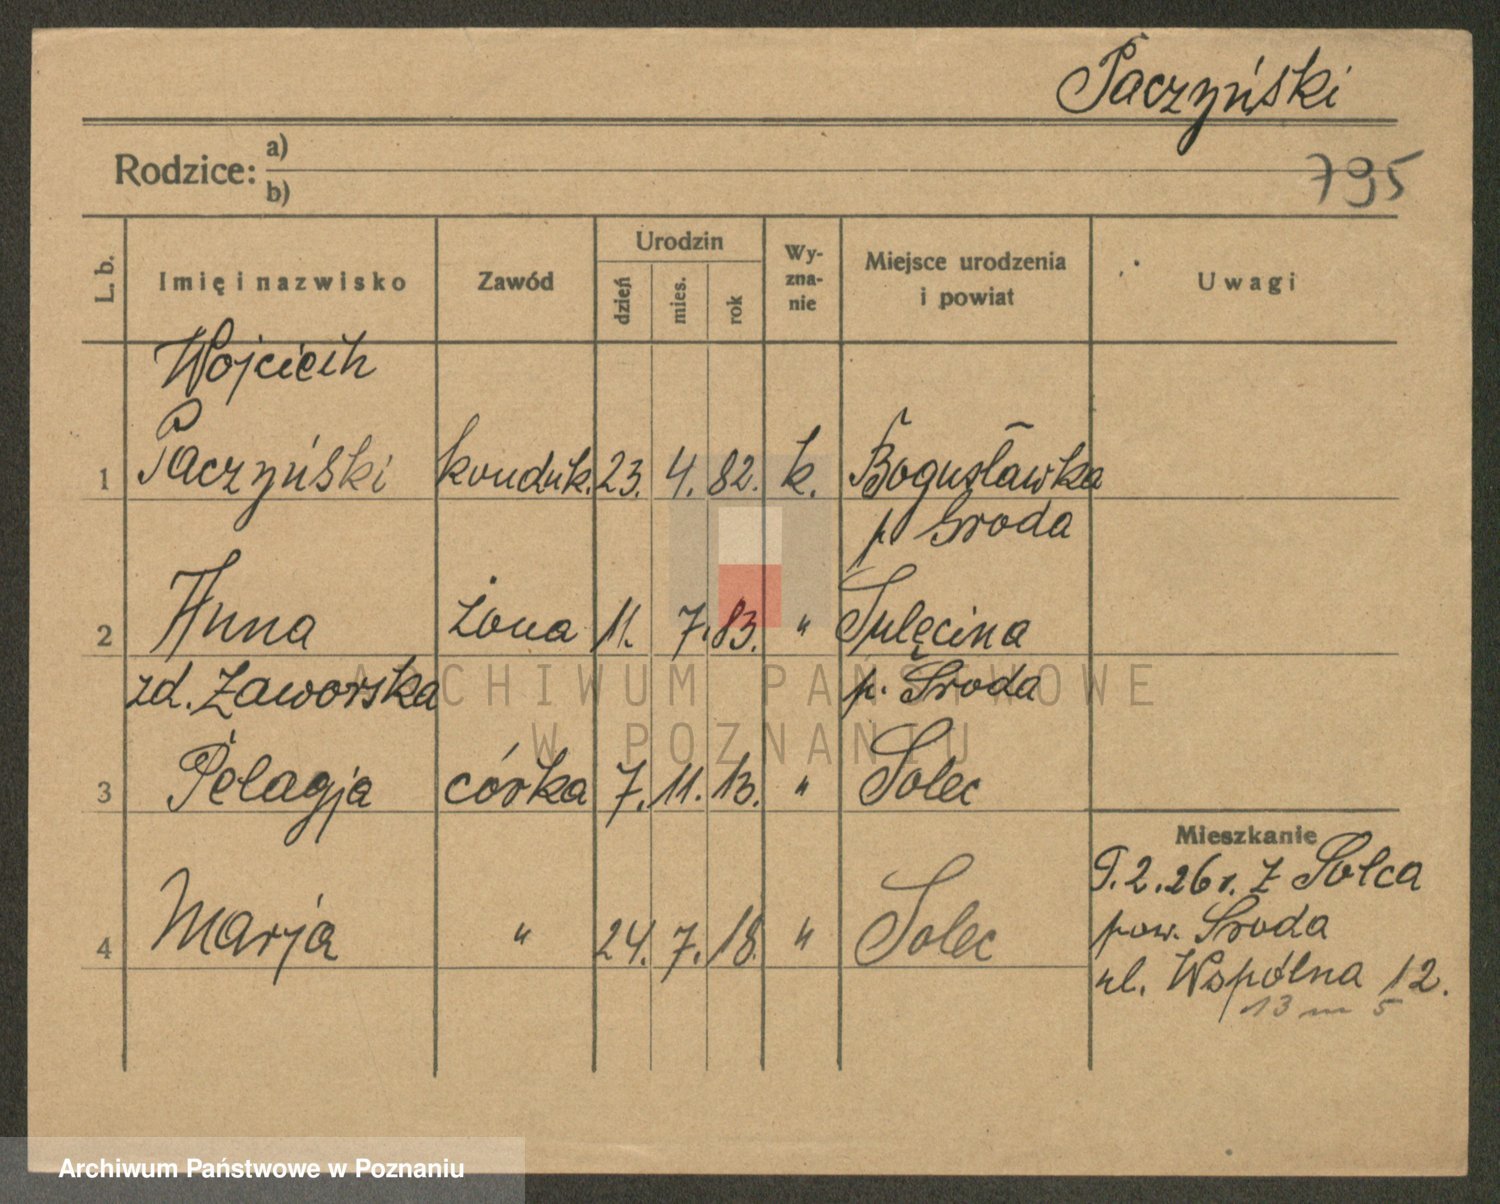 Paczyński
Rodzice: a)
b)
795
L. b.
Imię i nazwisko
Zawód
Urodzin
dzień
mies.
rok
Wy-
zna-
nie
Miejsce urodzenia
i powiat
Uwagi
Wojciech
1 Paczyński konduk. 23. 4. 82. k. Bogusławka
p. Środa
2 Anna żona 11. 7. 83. " Sulęcina
zd. Zaworska p. Środa
3 Pelagja córka 7. 11. 13. " Solec
Mieszkanie
4 Marja " 24. 7. 18. " Solec
9.2.26 r. z Solca
pow. Środa
ul. Wspólna 12.
13 m 5
ARCHIWUM PAŃSTWOWE
W POZNANIU
Archiwum Państwowe w Poznaniu